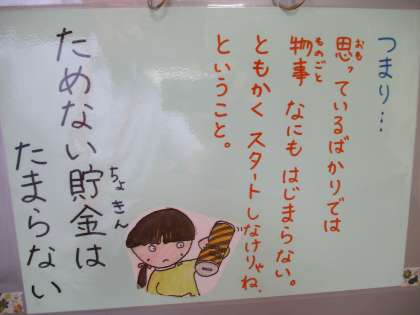 つまり…
思っているばかりでは
おも
物事 なにもはじまらない。
ものごと
ともかく スタートしなけりゃね、
ということ。
ためない貯金は
ちょきん
たまらない